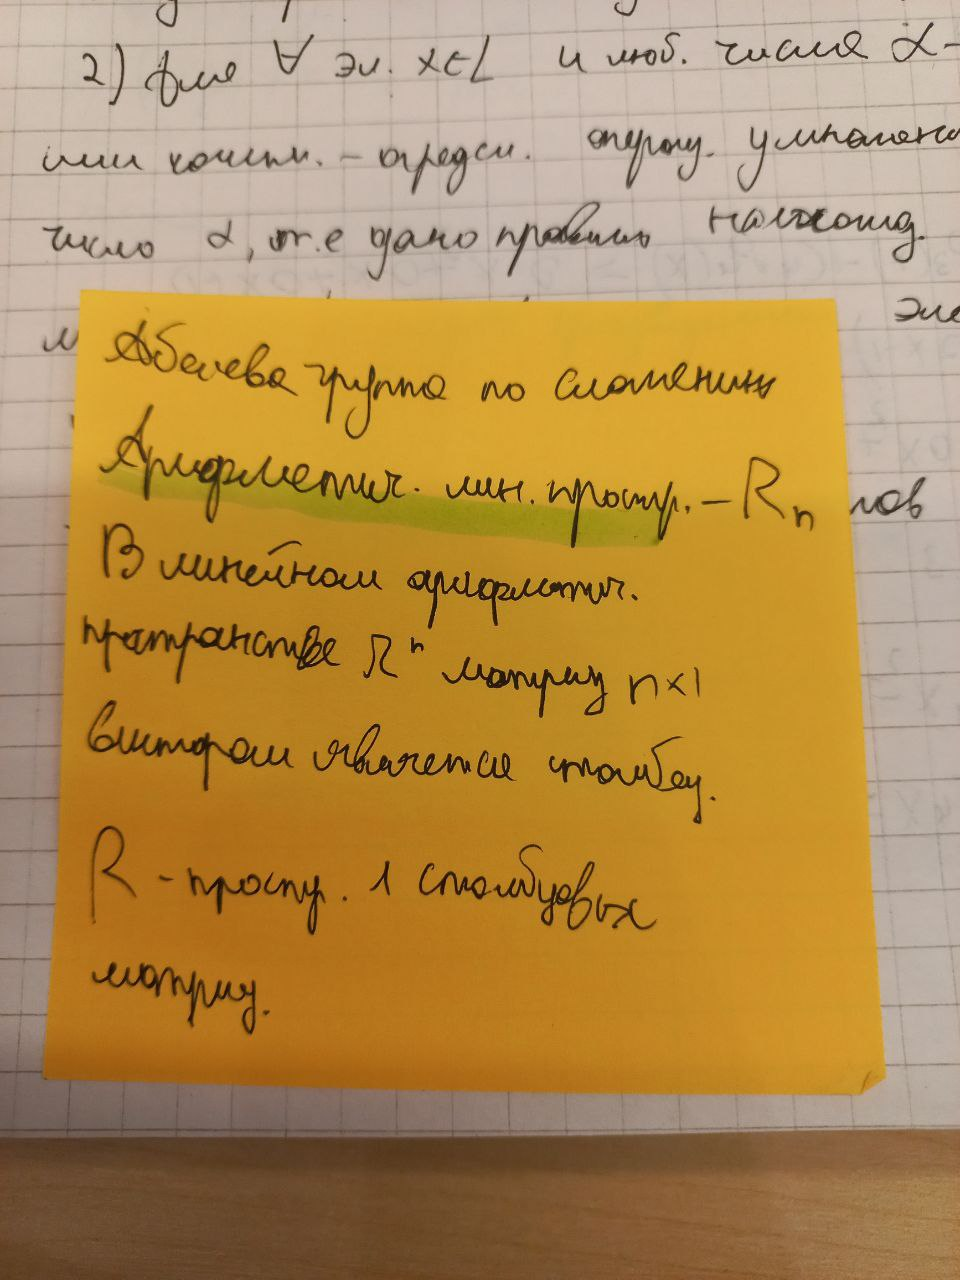 2) для ∀ эл. x∈L и люб. числа α -
или конст. - опред. операц. умножени
число α, т.е дано правило нахожд.
эле
Абелева группа по сложению
Арифметич. лин. простр. - Rn
лов
В линейном арифметич.
пространстве Rⁿ матриц n×1
вектором является столбец.
R - простр. 1 столбцовых
матриц.